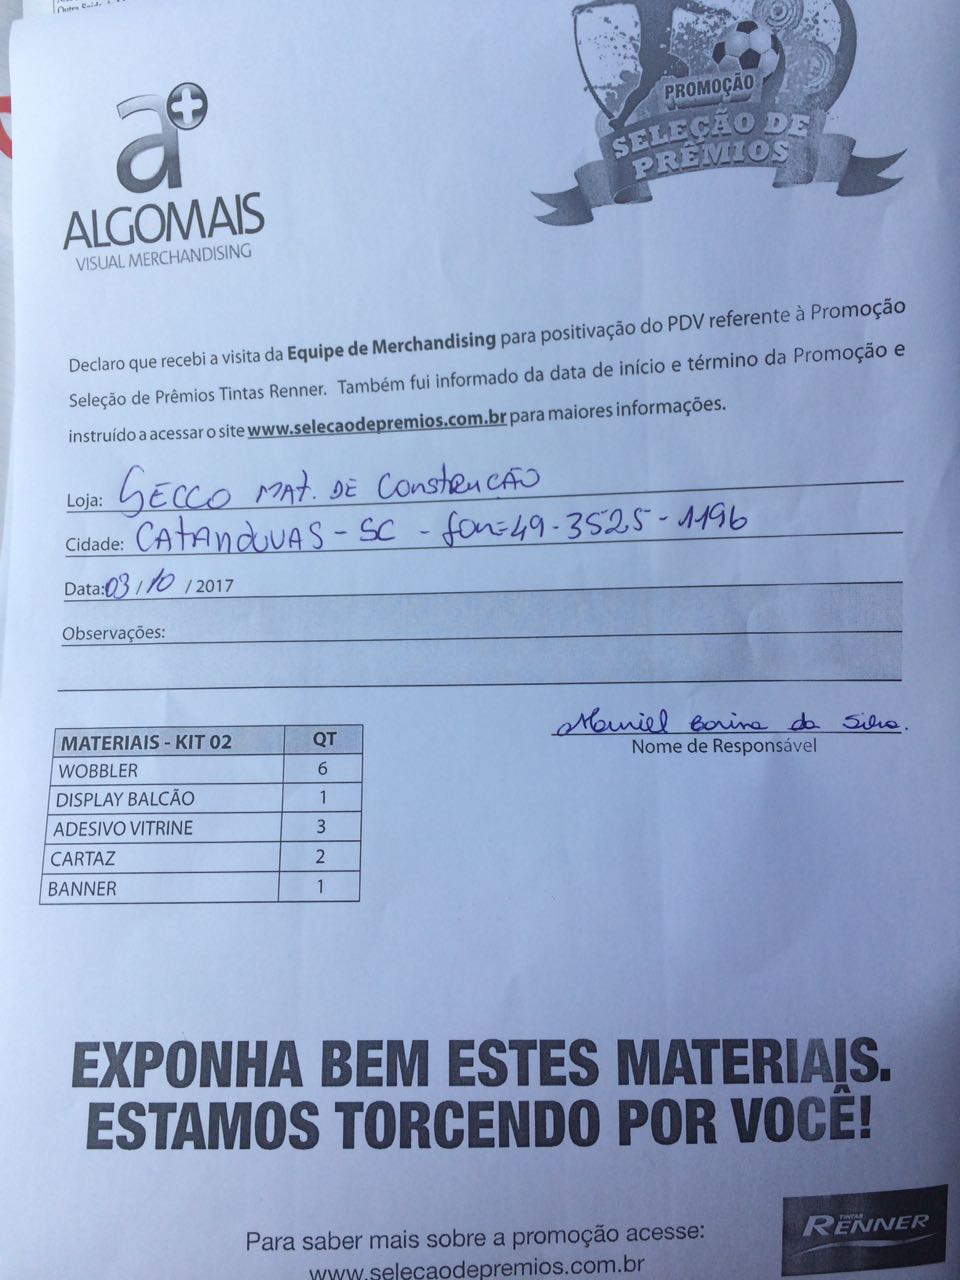 PROMOÇÃO
SELEÇÃO DE
PRÊMIOS
a+
ALGOMAIS
VISUAL MERCHANDISING
Declaro que recebi a visita da Equipe de Merchandising para positivação do PDV referente à Promoção
Seleção de Prêmios Tintas Renner. Também fui informado da data de início e término da Promoção e
instruído a acessar o site www.selecaodepremios.com.br para maiores informações.
Loja: SECCO MAT. DE CONSTRUCÃO
Cidade: CATANDUVAS - SC - fon=49-3525-1196
Data: 03 / 10 / 2017
Observações:
da Silva.
Nome de Responsável
MATERIAIS - KIT 02 QT
WOBBLER 6
DISPLAY BALCÃO 1
ADESIVO VITRINE 3
CARTAZ 2
BANNER 1
EXPONHA BEM ESTES MATERIAIS.
ESTAMOS TORCENDO POR VOCÊ!
Para saber mais sobre a promoção acesse:
www.selecaodepremios.com.br
TINTAS
RENNER